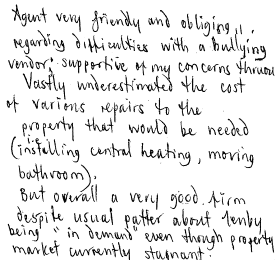 Agent very friendly and obliging,
regarding difficulties with a bullying
vendor; supportive of my concerns
Vastly underestimated the cost
of various repairs to the
property that would be needed
(installing central heating, moving
bathroom).
But overall a very good firm
despite usual patter about Tenby
being "in demand" even though property
market currently stagnant.